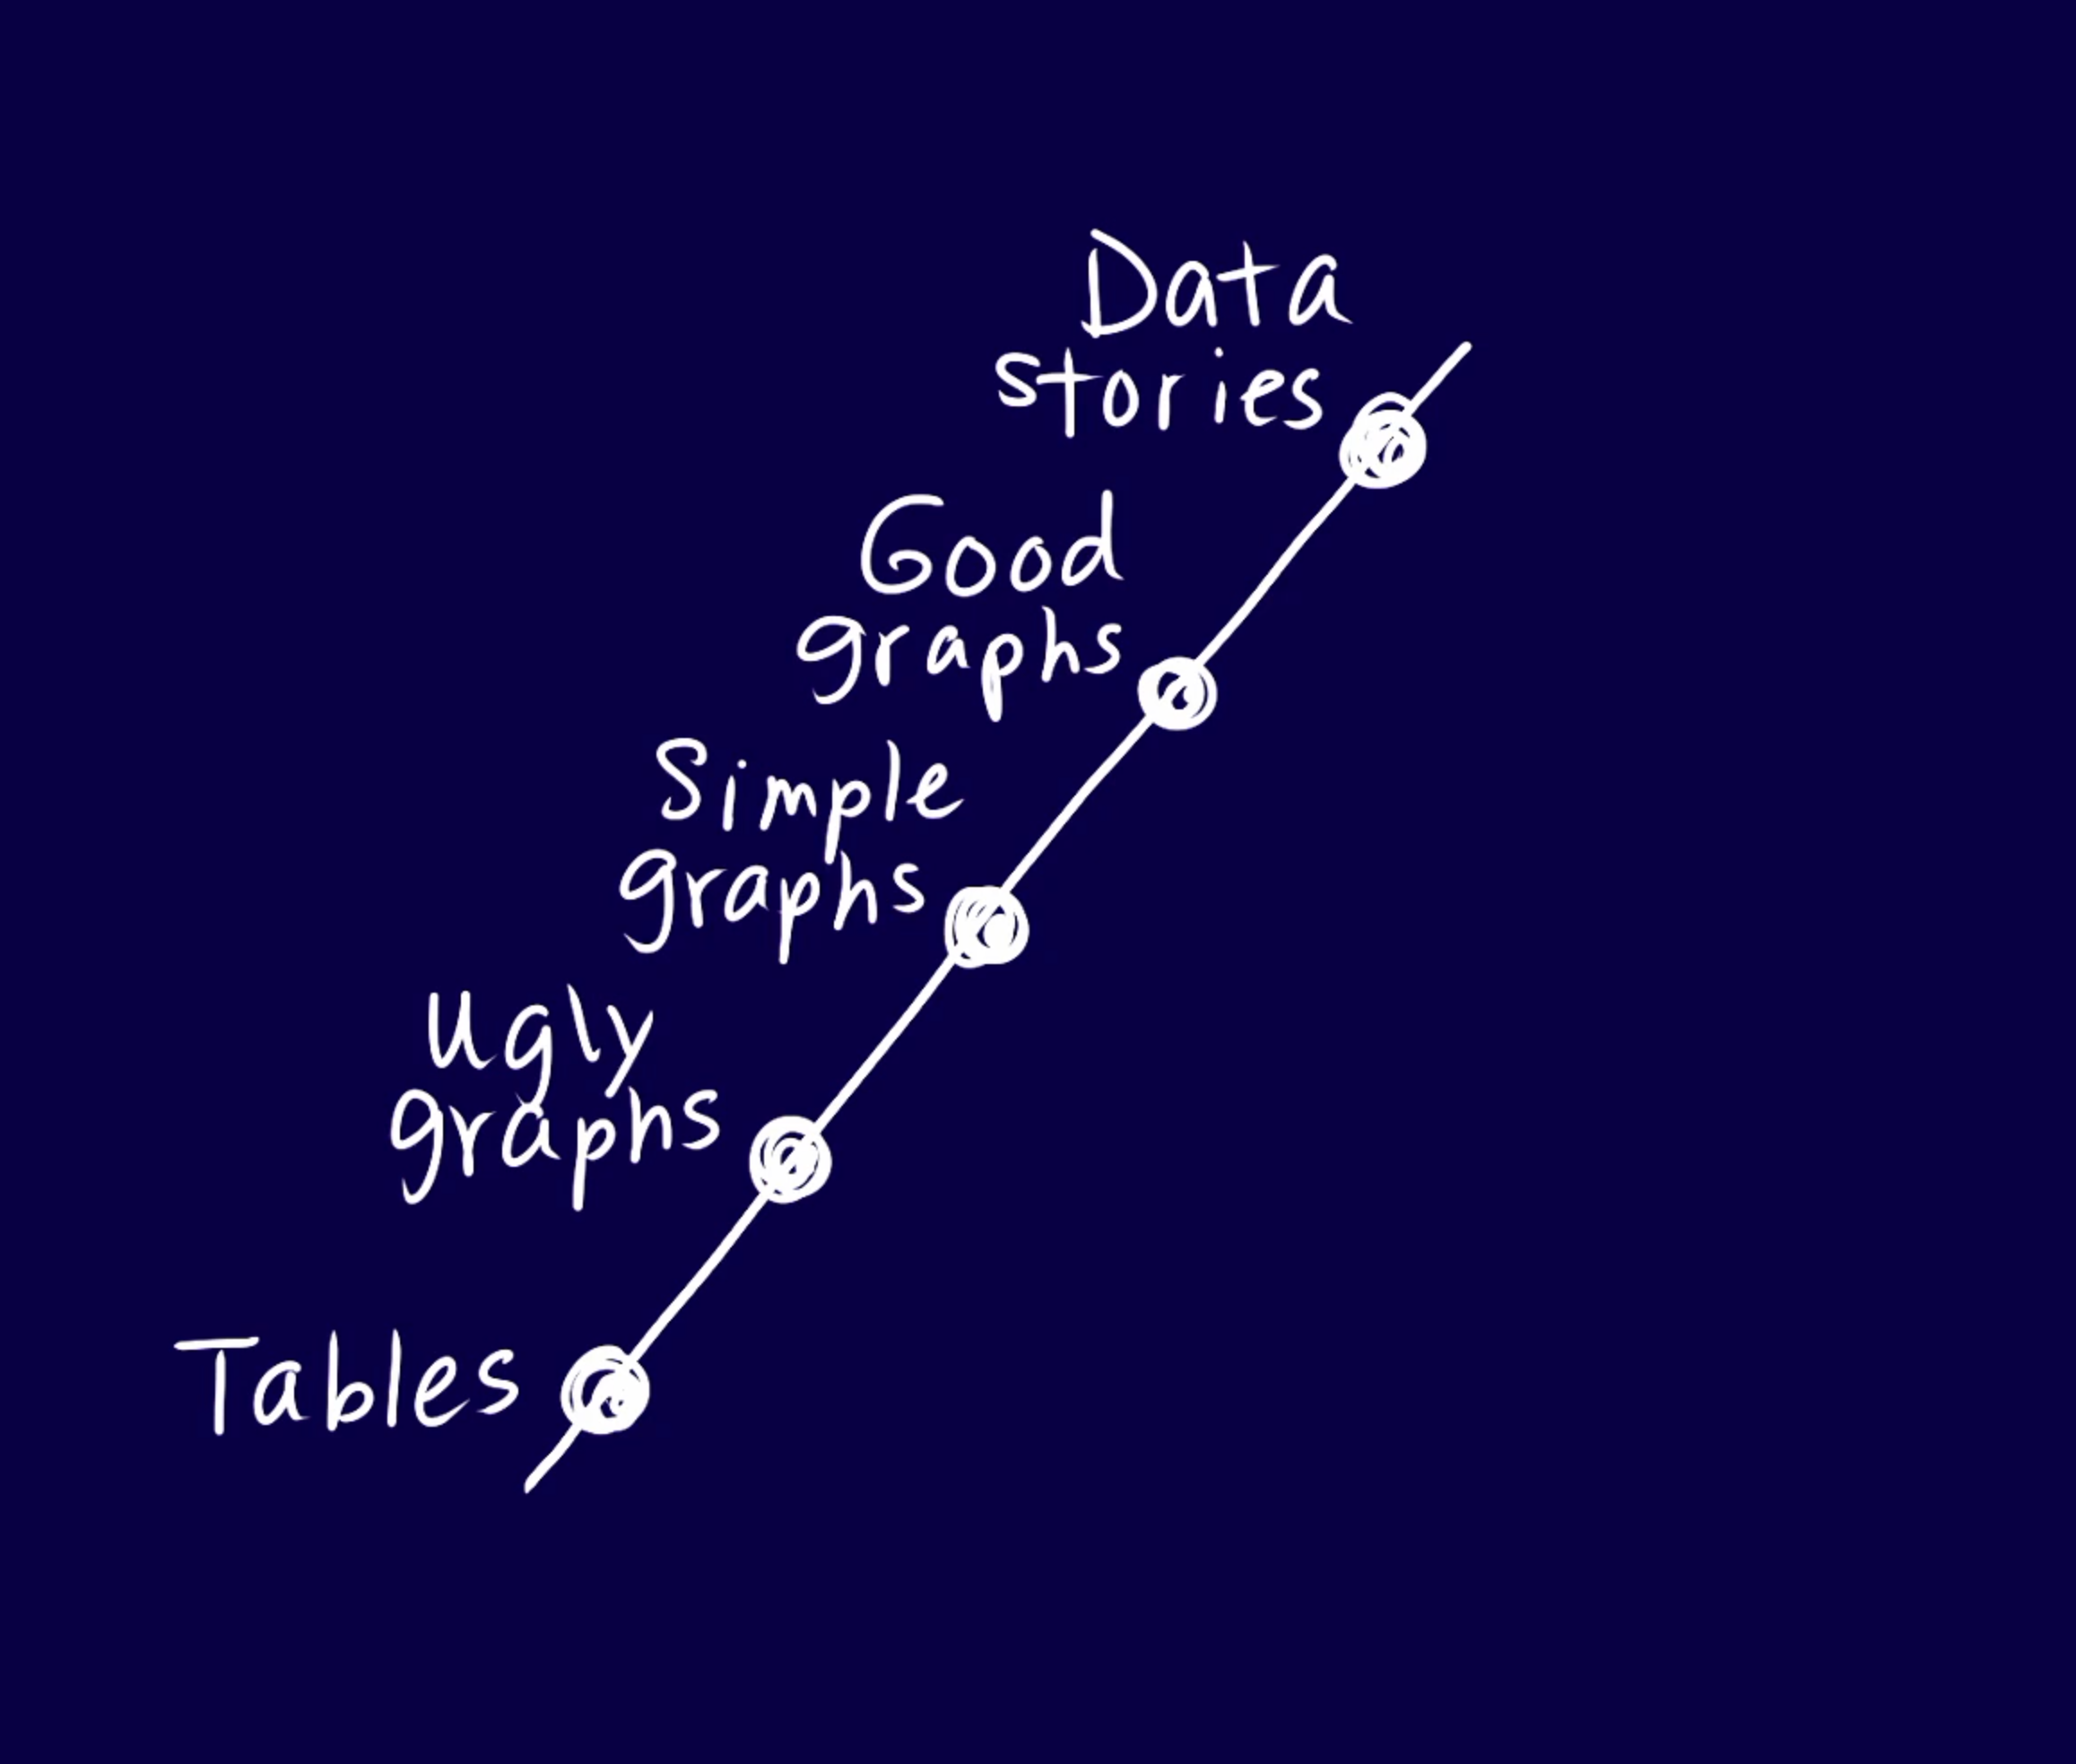 Data
stories
Good
graphs
Simple
graphs
Ugly
graphs
Tables